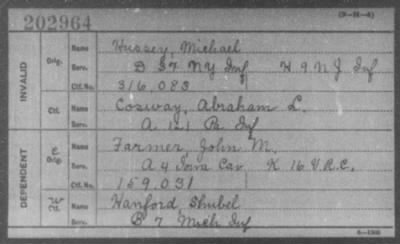 202964
INVALID
Orig. Name Hussey, Michael
Serv. D 37 NY Inf H 9 N J Inf
Ctf. No. 316.083
Ctf. Name Cosway, Abraham L.
Serv. A 121 Pa Inf
DEPENDENT
C Orig. Name Farmer, John M.
Serv. A 4 Iowa Cav K 16 V.R.C.
Ctf. No. 159.031
W Ctf. Name Hanford Shubel
Serv. B 7 Mich Inf